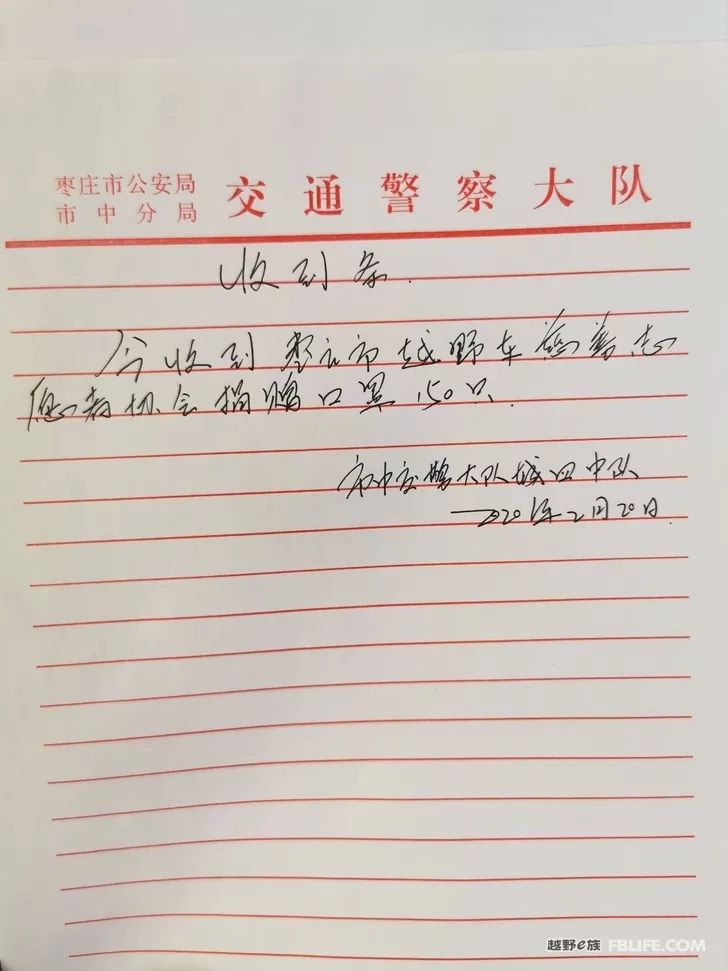 枣庄市公安局
市中分局 交通警察大队
收到条.
今收到枣庄市越野车慈善志
愿者协会捐赠口罩150只.
市中交警大队城四中队
2020年2月20日
越野e族 FBLIFE.COM